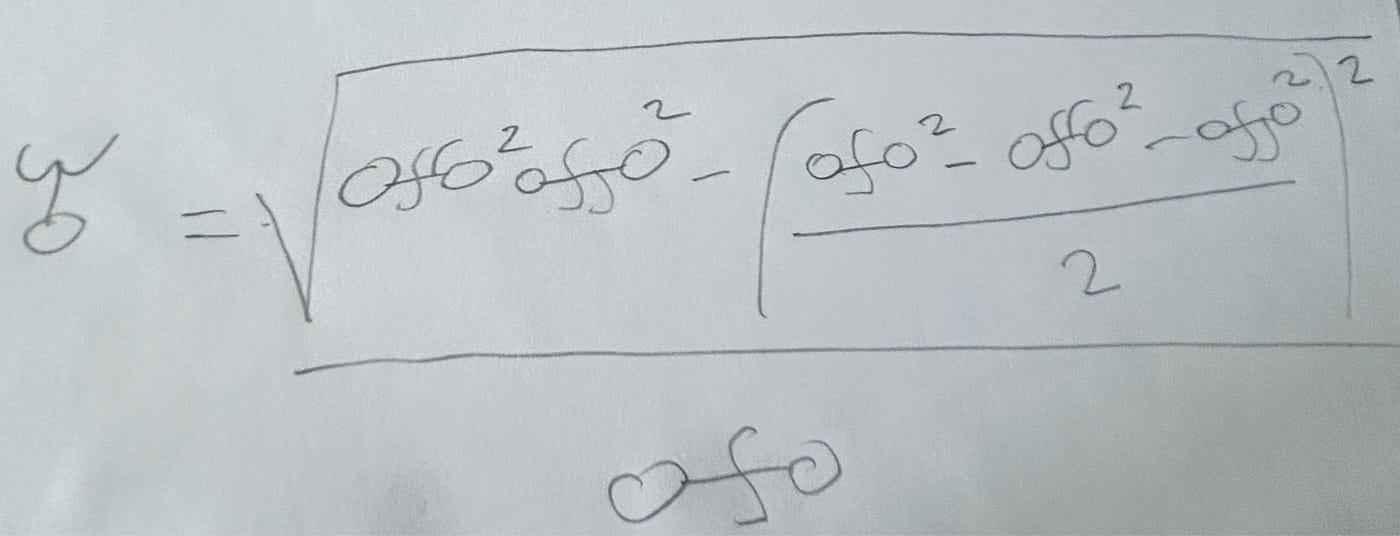 = √ offo² offo² - ( ofo² - offo² - offo² )²
2
ofo